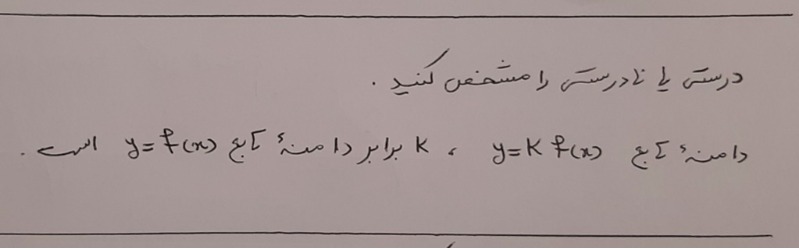 درستی یا نادرستی را مشخص کنید .
دامنهٔ تابع y=k f(x) ، k برابر دامنهٔ تابع y=f(x) است .